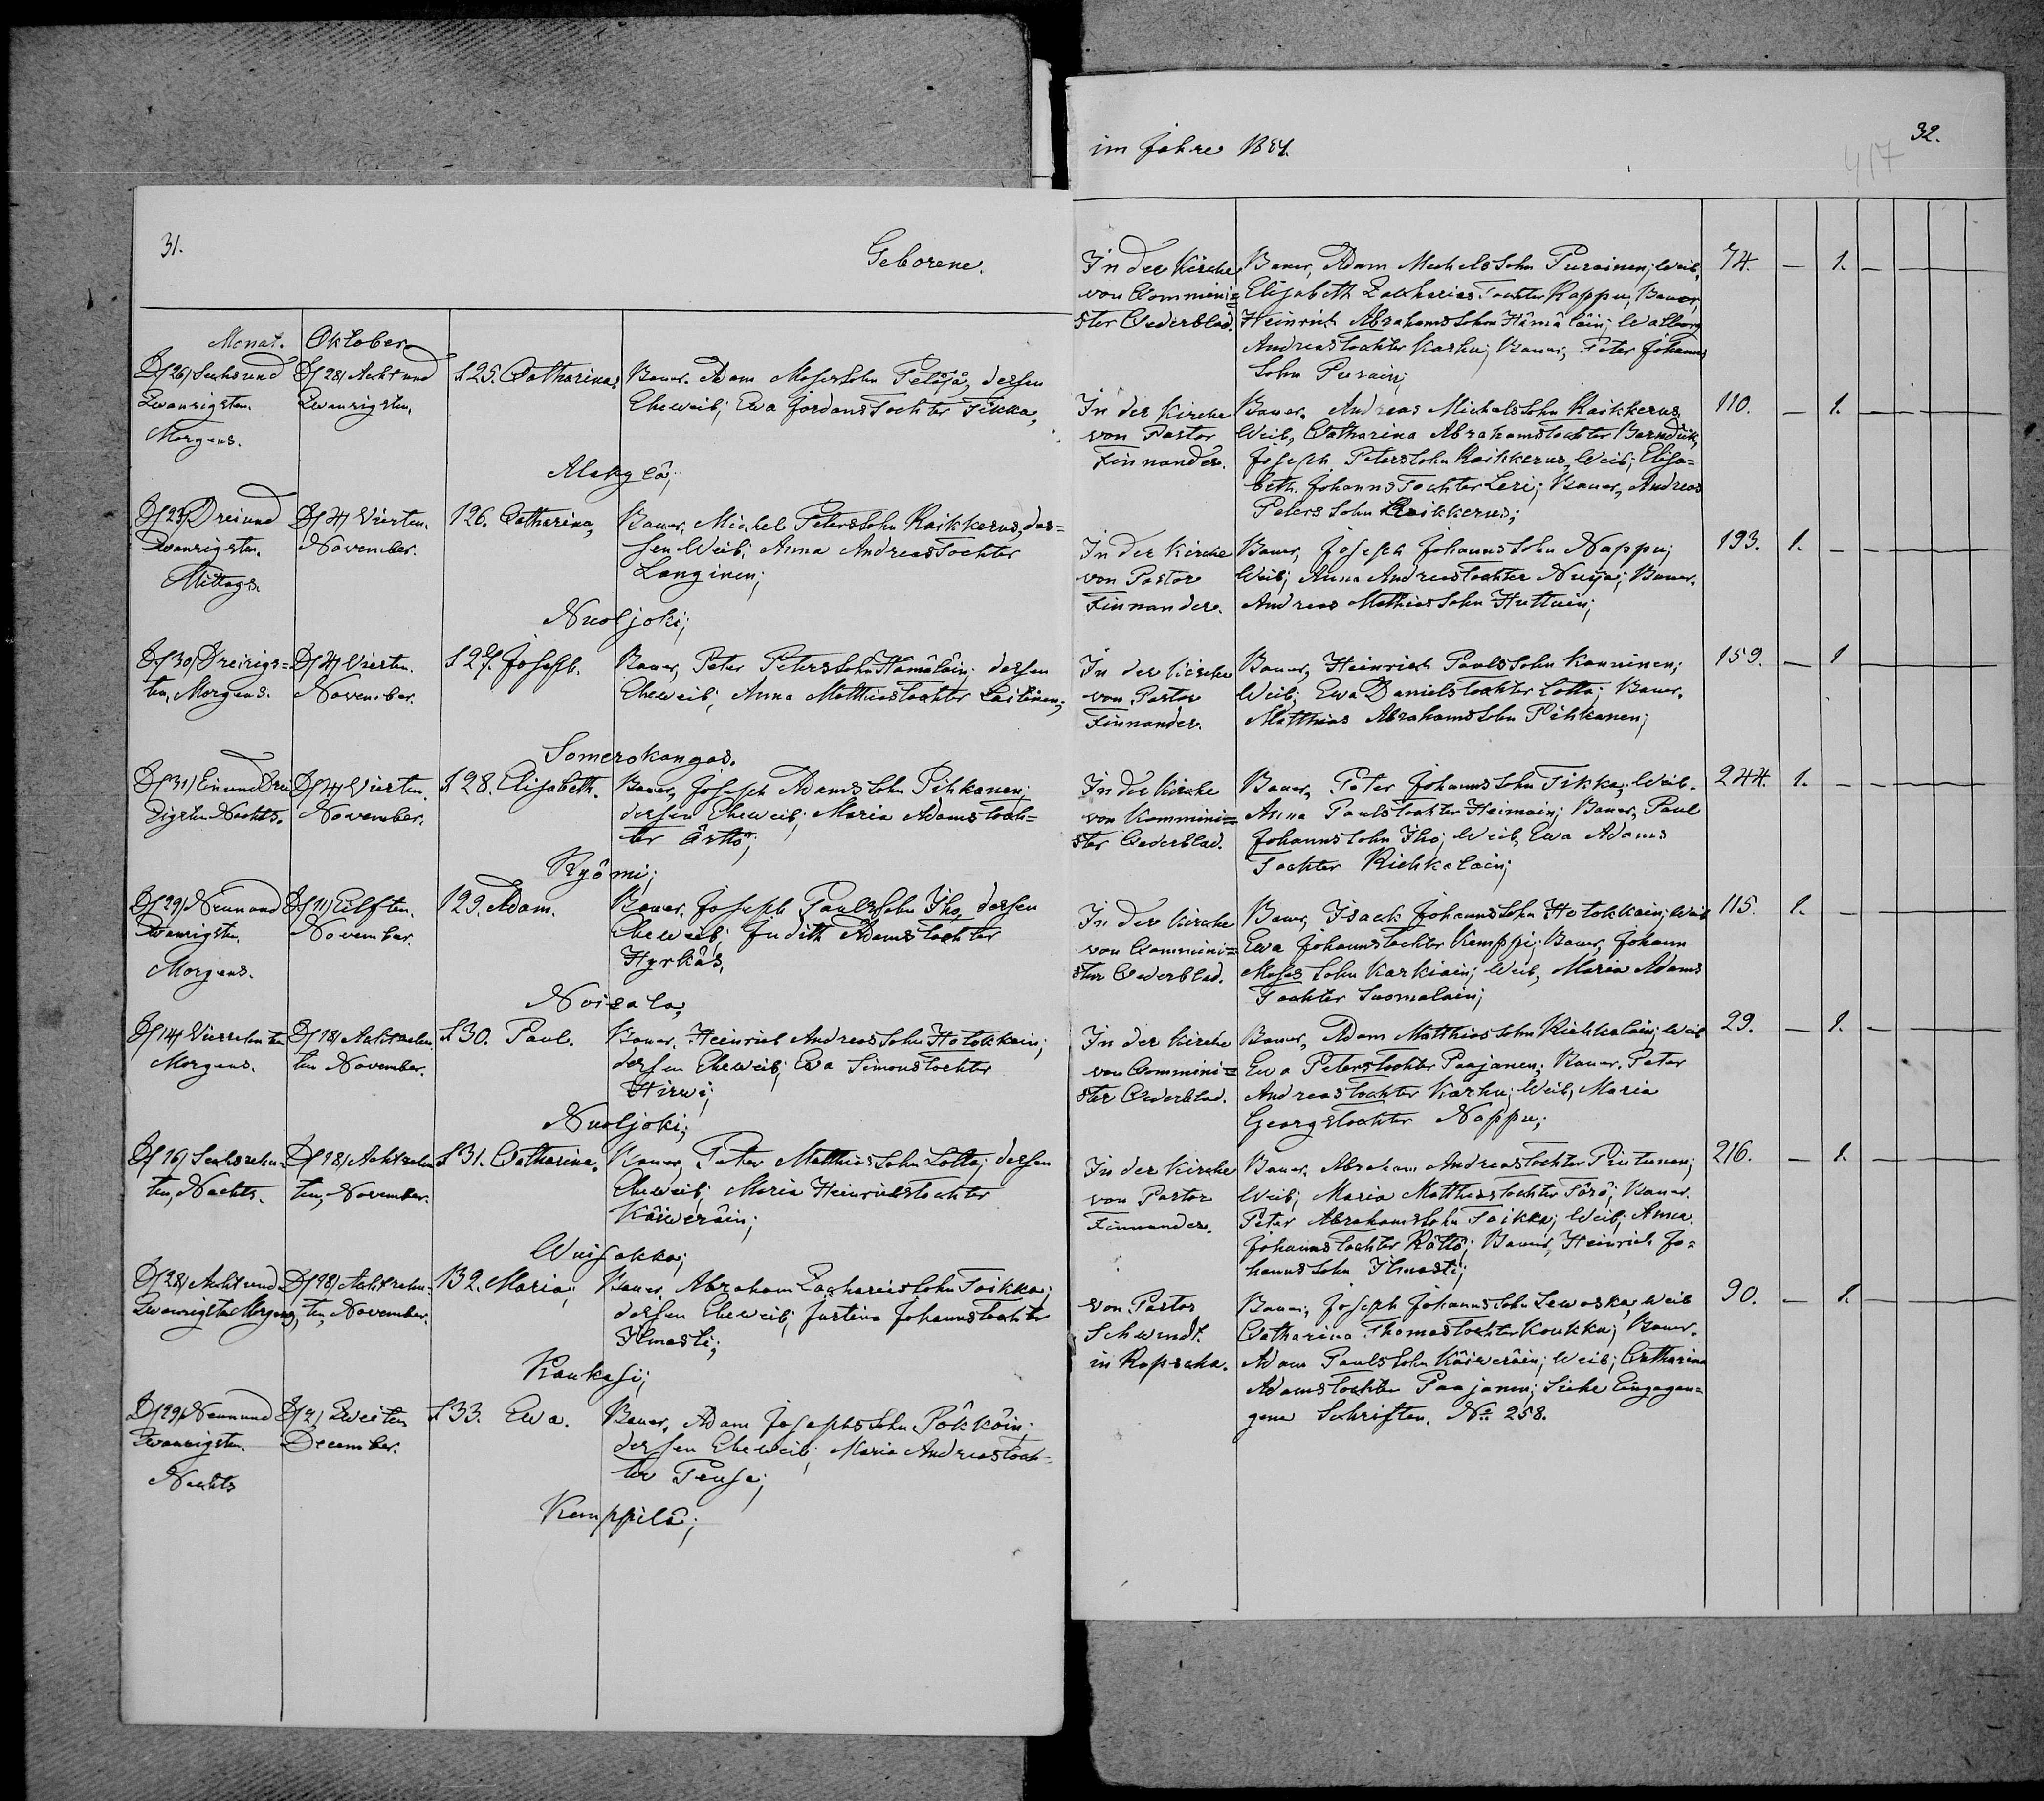 31.
Geborene.
Monat. Oktober.
D/26/ Sechsund D/28/ Achtund 125. Catharina. Bauer. Adam Mosessohn Telöjä, dessen
Zwanzigsten. Zwanzigsten. Eheweib; Ewa Jordanstochter Tikka,
Morgens.
Alakylä;
D/23/ Dreiund D/4/ Vierten. 126. Catharina, Bauer, Michel Peterssohn Raikkerus, des=
Zwanzigsten. November. sen Weib; Anna Andreastochter
Mittags. Langinen;
Nuoljoki;
D/30/ Dreizigs= D/4/ Vierten. 127. Joseph. Bauer, Peter Peterssohn Hämäläin; dessen
ten, Morgens. November. Eheweib; Anna Matthiastochter Laitinen;
Somerokangas.
D/31/ Einund Drei D/4/ Vierten. 128. Elisabeth. Bauer, Joseph Adamssohn Pihkanen;
zigsten Nachts. November. dessen Eheweib; Maria Adamstoch=
ter Ärttö;
Ryömi;
D/29/ Neunund D/11/ Eilften. 129. Adam. Bauer, Joseph Paulssohn Iho, dessen
Zwanzigsten. November. Eheweib; Judith Adamstochter
Morgens. Hyrkäs,
Noisala;
D/14/ Vierzehnten D/18/ Achtzehn 130. Paul. Bauer. Heinrich Andreassohn Hotokkain;
Morgens. ten November. dessen Eheweib; Ewa Simonstochter
Hirwi;
Nuoljoki;
D/16/ Sechszehn= D/18/ Achtzehn 131. Catharina, Bauer, Peter Matthiassohn Lotta; dessen
ten, Nachts. ten, November. Eheweib; Maria Heinrichstochter
Käiweräin;
Wuisakka;
D/28/ Achtund D/18/ Achtzehn= 132. Maria; Bauer, Abraham Zachariassohn Toikka;
Zwanzigsten Morgens, ten, November. dessen Eheweib; Justina Johannstochter
Ilmasti;
Kaukasi;
D/29/ Neunund D/2/ Zweiten 133. Ewa. Bauer, Adam Josephssohn Pökköin;
Zwanzigsten. December. dessen Eheweib; Maria Andreastoch=
Nachts ter Peusa;
Kemppilä;
im Jahre 1884.
32.
417
In der Kirche Bauer, Adam Michelssohn Purainen; Weib, 74. — 1. — — — —
von Commini= Elisabeth Zacharias Tochter Rappu, Bauer,
ster Cederblad. Heinrich Abrahamssohn Hämäläin; Walborg
Andreastochter Karhu; Bauer, Peter Johanns
Sohn Purain;
In der Kirche Bauer, Andreas Michelssohn Raikkerus, 110. — 1. — — — —
von Pastor Weib, Catharina Abrahamstochter
Finnander. Joseph Peterssohn Raikkerus, Weib; Elisa=
beth. Johanns Tochter Leri; Bauer, Andreas
Peters Sohn Raikkerus;
In der Kirche Bauer, Joseph Johannssohn Nappu; 193. 1. — — — — —
von Pastor Weib; Anna Andreastochter Nuija; Bauer.
Finnander. Andreas Mathiassohn Huttuin;
In der Kirche Bauer, Heinrich Paulssohn Kanninen; 159. — 1 — — — —
von Pastor Weib; Ewa Danielstochter Lotta; Bauer.
Finnander. Matthias Abrahamssohn Pihkanen;
In der Kirche Bauer, Peter Johannssohn Tikka; Weib. 244. 1. — — — — —
von Kommini= Anna Paulstochter Heimain; Bauer, Paul
ster Cederblad. Johannssohn Iho; Weib, Ewa Adams
Tochter Kiehkalain;
In der Kirche Bauer, Isack Johannssohn Hotokkain; Weib 115. 1. — — — — —
von Commini= Ewa Johannstochter Kemppi; Bauer, Johann
ster Cederblad. Moses Sohn Karkiain; Weib, Maria Adams
Tochter Suomalain;
In der Kirche Bauer, Adam Matthiassohn Kiehkaläin; Weib 29. — 1. — — — —
von Commini= Ewa Peterstochter Paajanen; Bauer. Peter
ster Cederblad. Andreastochter Karhu; Weib, Maria
Georgstochter Nappu;
In der Kirche Bauer. Abraham Andreastochter 216. — 1. — — — —
von Pastor Weib; Maria Matthiastochter Törö; Bauer.
Finnander. Peter Abrahamssohn Toikka; Weib; Anna.
Johannstochter Rättö; Bauer, Heinrich Jo=
hannssohn Ilmasti;
von Pastor Bauer, Joseph Johannssohn Lewoska, Weib 90. — 1. — — — —
Schwindt. Catharina Thomastochter Koukku; Bauer.
in Ropscha. Adam Paulssohn Käiweräin; Weib; Catharina
Adamstochter Paajanen; Siehe Eingegan=
gene Schriften. № 258.